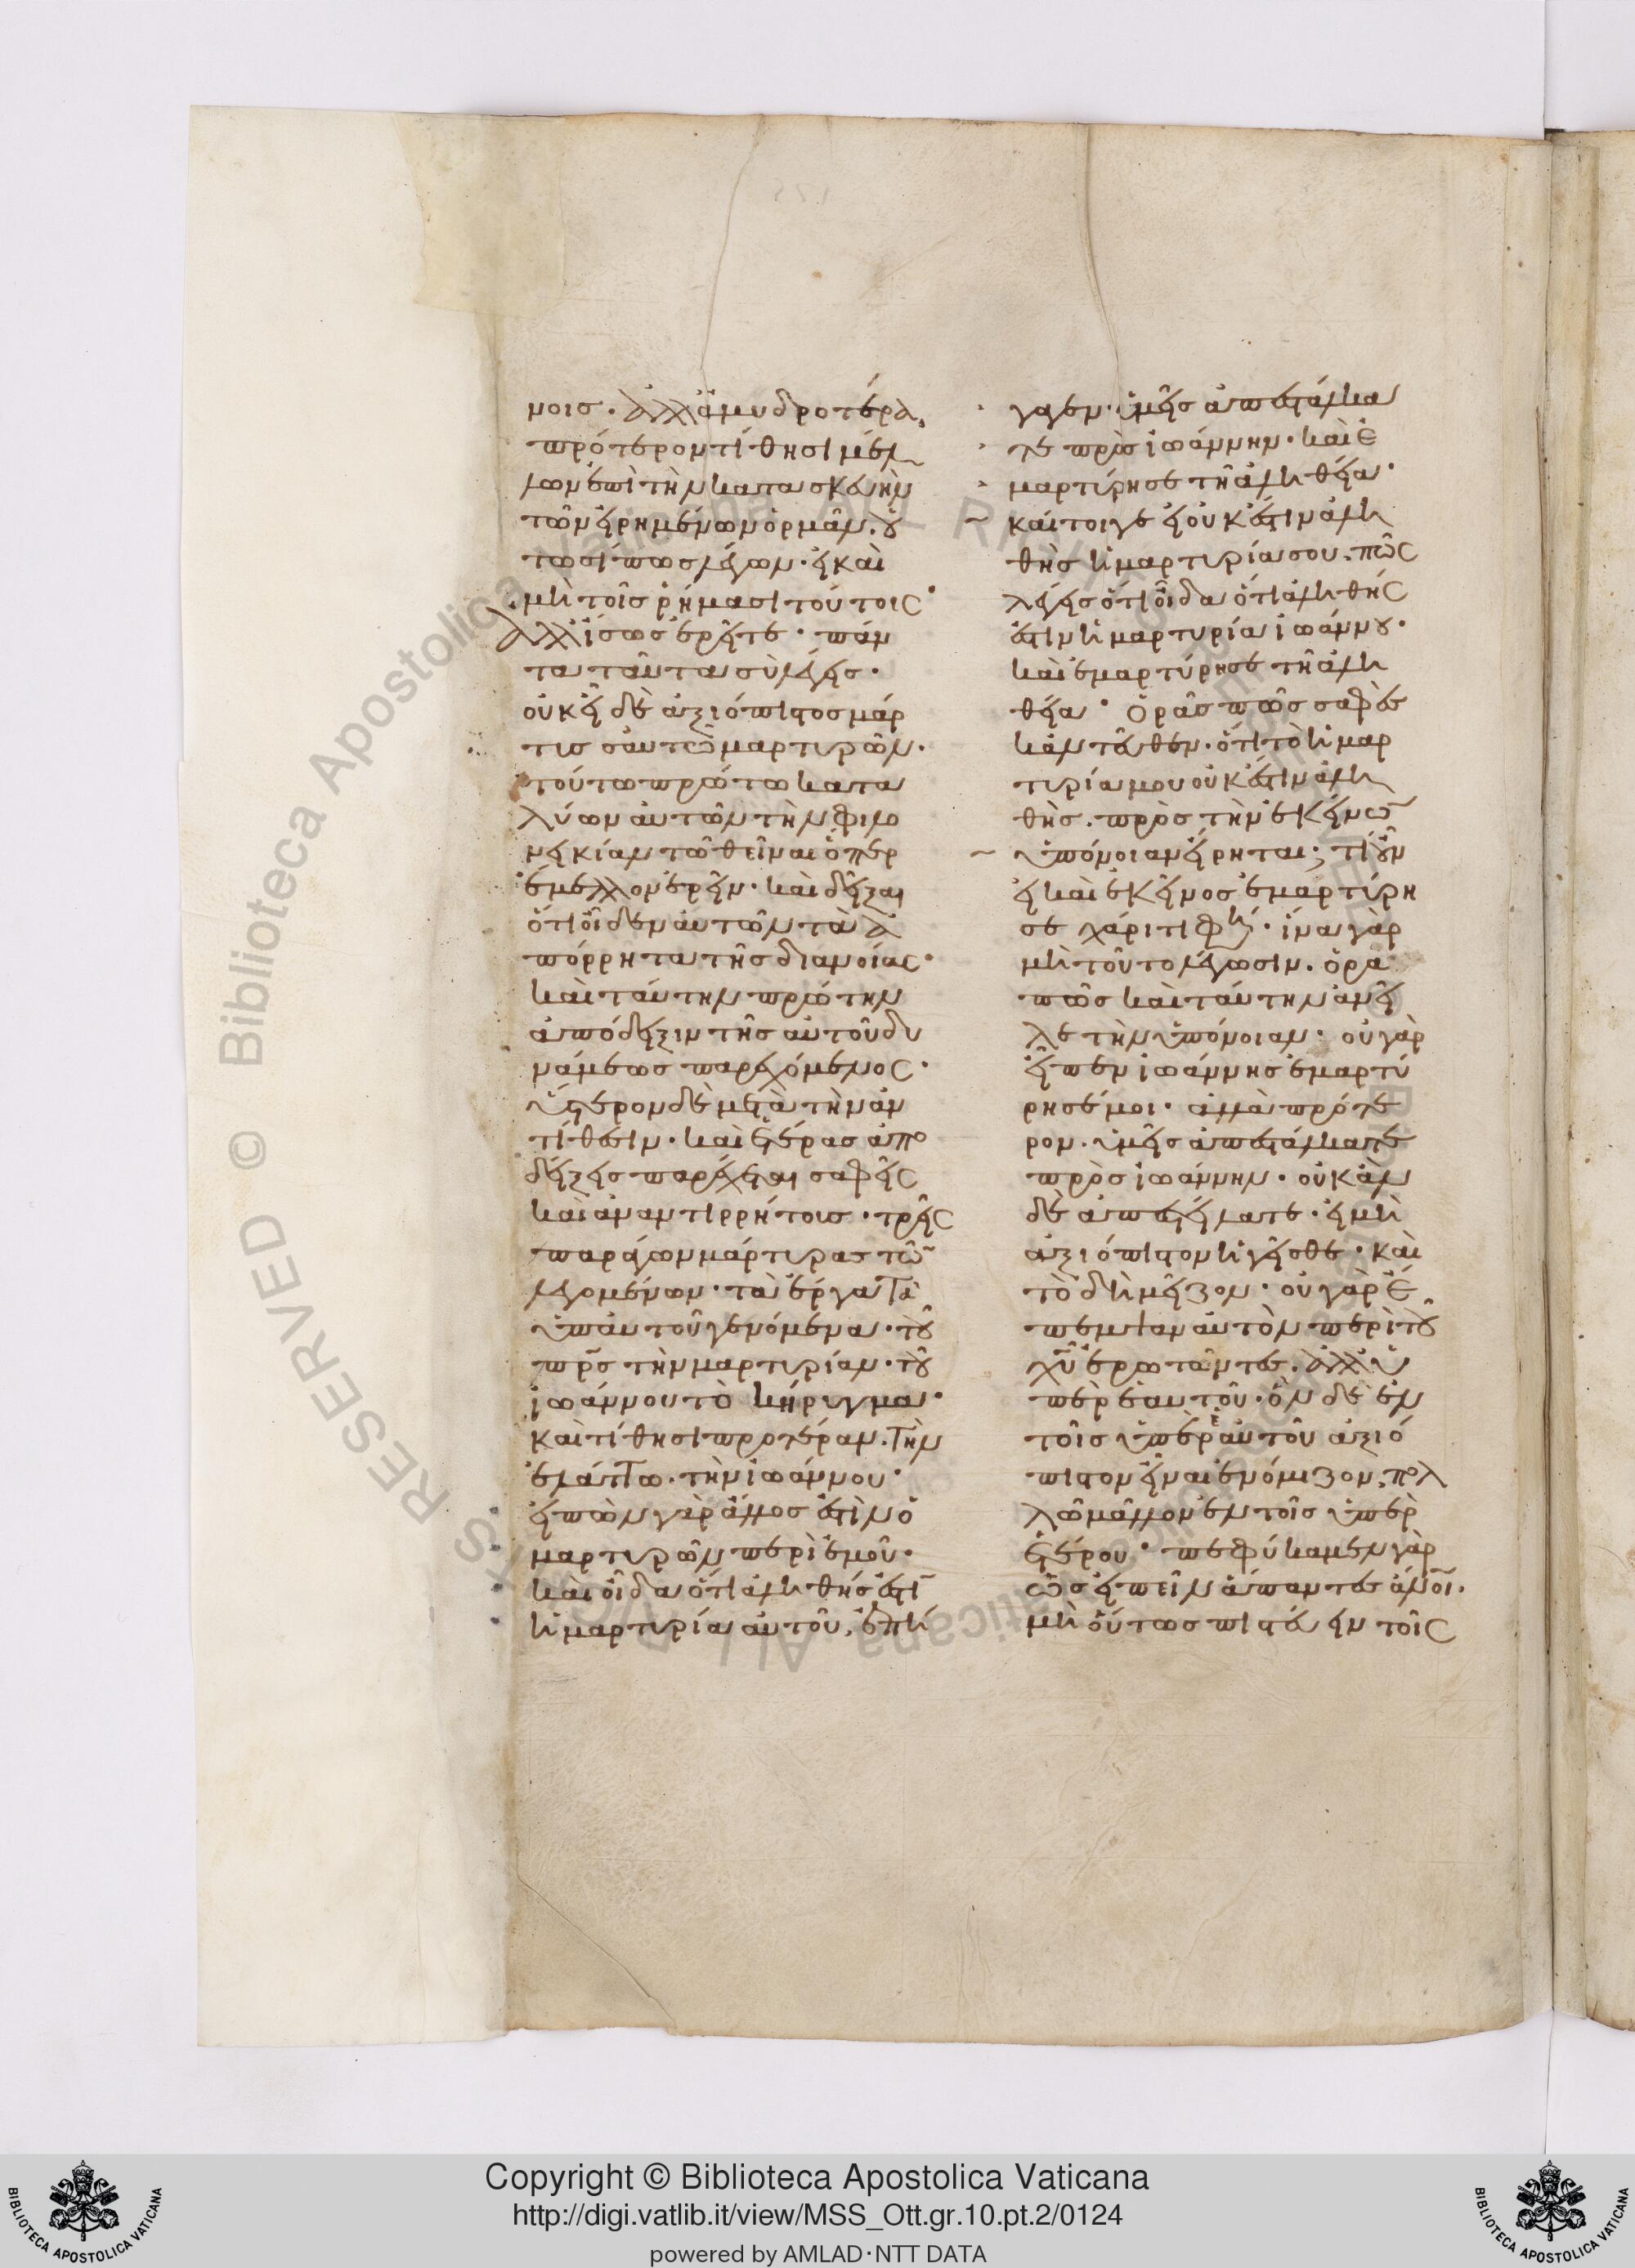 μοις. ἀλλ' ἀμυδρότερα
πρότερον τίθησι μέλ
λων ἐπὶ τὴν κατασκευὴν
τῶν εἰρημένων ὁρμᾶν. οὑ
τωσί πως λέγων. εἰ καὶ
μὴ τοῖς ῥήμασι τούτοις·
ἀλλ' ἴσως ἐρεῖτε. πάν
τα ταῦτα σὺ λέγεις.
οὐκ εἶ δὲ ἀξιόπιστος μάρ
τις σαυτῶ μαρτυρῶν.
τούτω πρώτω κατα
λύων αὐτῶν τὴν φιλο
νεικίαν τῶ θεῖναι ὅπερ
ἔμελλον ἐρεῖν. καὶ δεῖξαι
ὅτι οἶδεν αὐτῶν τὰ ἀ
πόρρητα τῆς διανοίας.
καὶ ταύτην πρώτην
ἀπόδειξιν τῆς αὐτοῦ δυ
νάμεως παρεχόμενος.
ὕστερον δὲ μετὰ τὴν ἀν
τίθεσιν. καὶ ἑτέρας ἀπο
δείξεις παρέχεται σαφεῖς
καὶ ἀναντιρρήτοις. τρεῖς
παράγων μάρτυρας τῶν
λεγομένων. τὰ ἔργα τὰ
ὑπ' αὐτοῦ γενόμενα. τοῦ
πρς τὴν μαρτυρίαν. τοῦ
ἰωάννου τὸ κήρυγμα.
καὶ τίθησι προτέραν. τὴν
ἐλάττω. τὴν ἰωάννου.
εἰπὼν γὰρ ἄλλος ἐστὶν ὁ
μαρτυρῶν περὶ ἐμοῦ.
καὶ οἶδα ὅτι ἀληθής ἐστιν
ἡ μαρτυρία αὐτοῦ, ἐπή
γαγεν. ὑμεῖς ἀπεστάλκα
τε πρὸς ἰωάννην. καὶ ἐ
μαρτύρησε τῆ ἀληθεία·
καίτοιγε εἰ οὐκ ἔστιν ἀλη
θὴς ἡ μαρτυρία σου, πῶς
λέγεις ὅτι οἶδα ὅτι ἀληθής
ἐστιν ἡ μαρτυρία ἰωάννου.
καὶ ἐμαρτύρησε τῆ ἀλη
θεία· Ὁρᾶς πῶς σαφὲς
κἀντεῦθεν. ὅτι τὸ ἡ μαρ
τυρία μου οὐκ ἔστιν ἀλη
θὴς. πρὸς τὴν ἐκείνων
ὑπόνοιαν εἴρηται; τί οὖν
εἰ καὶ ἐκεῖνος ἐμαρτύρη
σε χάριτι φη. ἵνα γὰρ
μὴ τοῦτο λέγωσιν. ὅρα
πῶς καὶ ταύτην ἀνεῖ
λε τὴν ὑπόνοιαν. οὐ γὰρ
εἶπεν ἰωάννης ἐμαρτύ
ρησέ μοι. ἀλλὰ πρότε
ρον. ὑμεῖς ἀπεστάλκατε
πρὸς ἰωάννην. οὐκ ἂν
δὲ ἀπεστείλατε. εἰ μὴ
ἀξιόπιστον ἡγεῖσθε. καὶ
τὸ δὴ μεῖζον. οὐ γὰρ ἔ
πεμψαν αὐτὸν περὶ τοῦ
χῦ ἐρωτῶντες. ἀλλ' ὑ
πὲρ ἑαυτοῦ. ὃν δὲ ἐν
τοῖς ὑπὲρ ἑαυτοῦ ἀξιό
πιστον εἶναι ἐνόμιζον, πολ
λῶ μᾶλλον ἐν τοῖς ὑπὲρ
ἑτέρου. πεφύκαμεν γὰρ
ὡς εἰπεῖν ἅπαντες ἄνοι.
μὴ οὕτως πιστεύειν τοῖς
Copyright © Biblioteca Apostolica Vaticana
http://digi.vatlib.it/view/MSS_Ott.gr.10.pt.2/0124
powered by AMLAD·NTT DATA
BIBLIOTECA APOSTOLICA VATICANA
BIBLIOTECA APOSTOLICA VATICANA